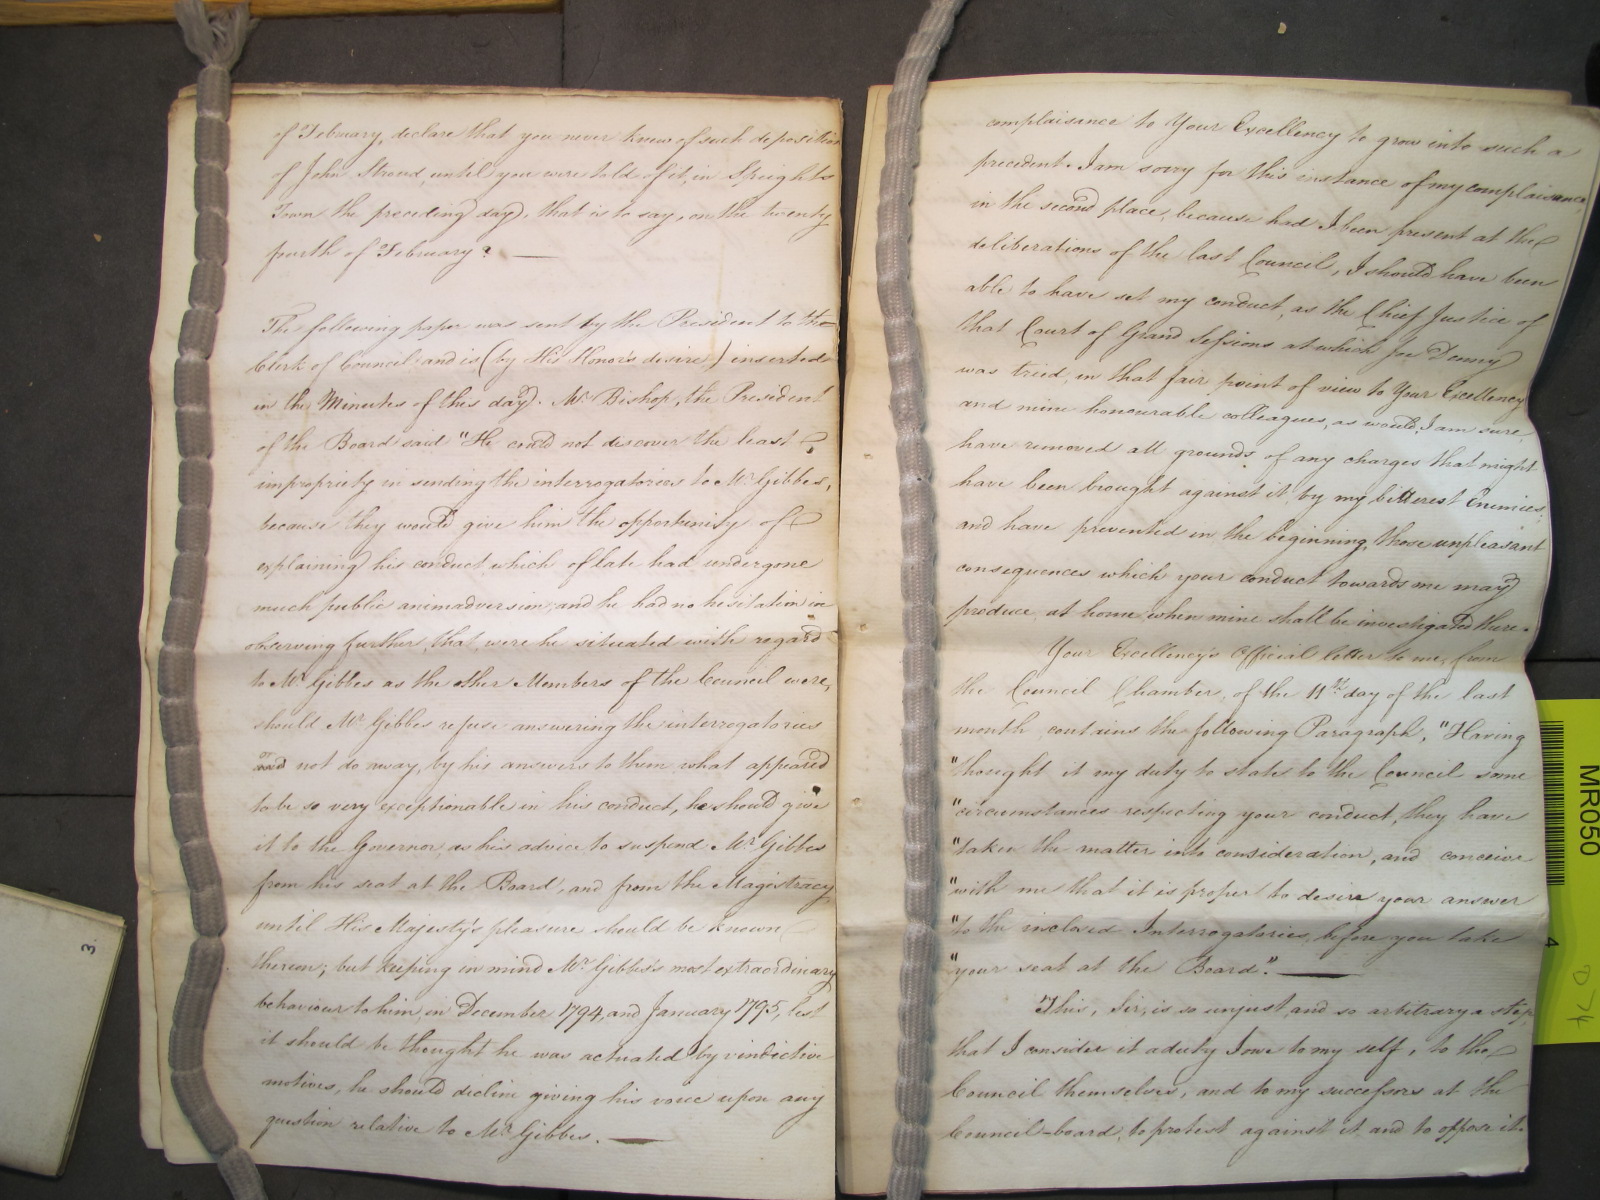 of February, declare that you never knew of such deposition
of John Stroud, until you were told of it, in Speights
Town the preceding day, that is to say, on the twenty
fourth of February? —
The following paper was sent by the President to the
Clerk of Council and is (by His Honor's desire,) inserted
in the Minutes of this day. Mr. Bishop, the President
of the Board said "He could not discover the least
impropriety in sending the interrogatories to Mr. Gibbes,
because they would give him the opportunity of
explaining his conduct which of late had undergone
much public animadversion, and he had no hesitation in
observing further, that were he situated with regard
to Mr. Gibbes as the other Members of the Council were,
should Mr. Gibbes refuse answering the interrogatories
or and not do away, by his answers to them what appeared
to be so very exceptionable in his conduct, he should give
it to the Governor as his advice to suspend Mr. Gibbes
from his seat at the Board, and from the Magistracy
until His Majesty's pleasure should be known
thereon; but keeping in mind Mr. Gibbes's most extraordinary
behaviour to him, in December 1794, and January 1795, lest
it should be thought he was actuated by vindictive
motives, he should decline giving his voice upon any
question relative to Mr. Gibbes. —
complaisance to Your Excellency to grow into such a
precedent. I am sorry for this instance of my complaisance,
in the second place, because had I been present at the
deliberations of the last Council, I should have been
able to have set my conduct, as the Chief Justice of
that Court of Grand Sessions at which Joe Denny
was tried, in that fair point of view to Your Excellency
and mine honourable colleagues, as would, I am sure,
have removed all grounds of any charges that might
have been brought against it, by my bitterest Enemies;
and have prevented in the beginning, those unpleasant
consequences which your conduct towards me may
produce at home, when mine shall be investigated there.
Your Excellency's Official letter to me, from
the Council Chamber, of the 11th. day of the last
month contains the following Paragraph, "Having
"thought it my duty to state to the Council some
"circumstances respecting your conduct, they have
"taken the matter into consideration, and conceive
"with me that it is proper to desire your answer
"to the inclosed Interrogatories, before you take
"your seat at the Board". —
This, Sir, is so unjust, and so arbitrary a step,
that I consider it a duty I owe to my self, to the
Council themselves, and to my successors at the
Council-board, to protest against it, and to oppose it.
3.
MR050
4